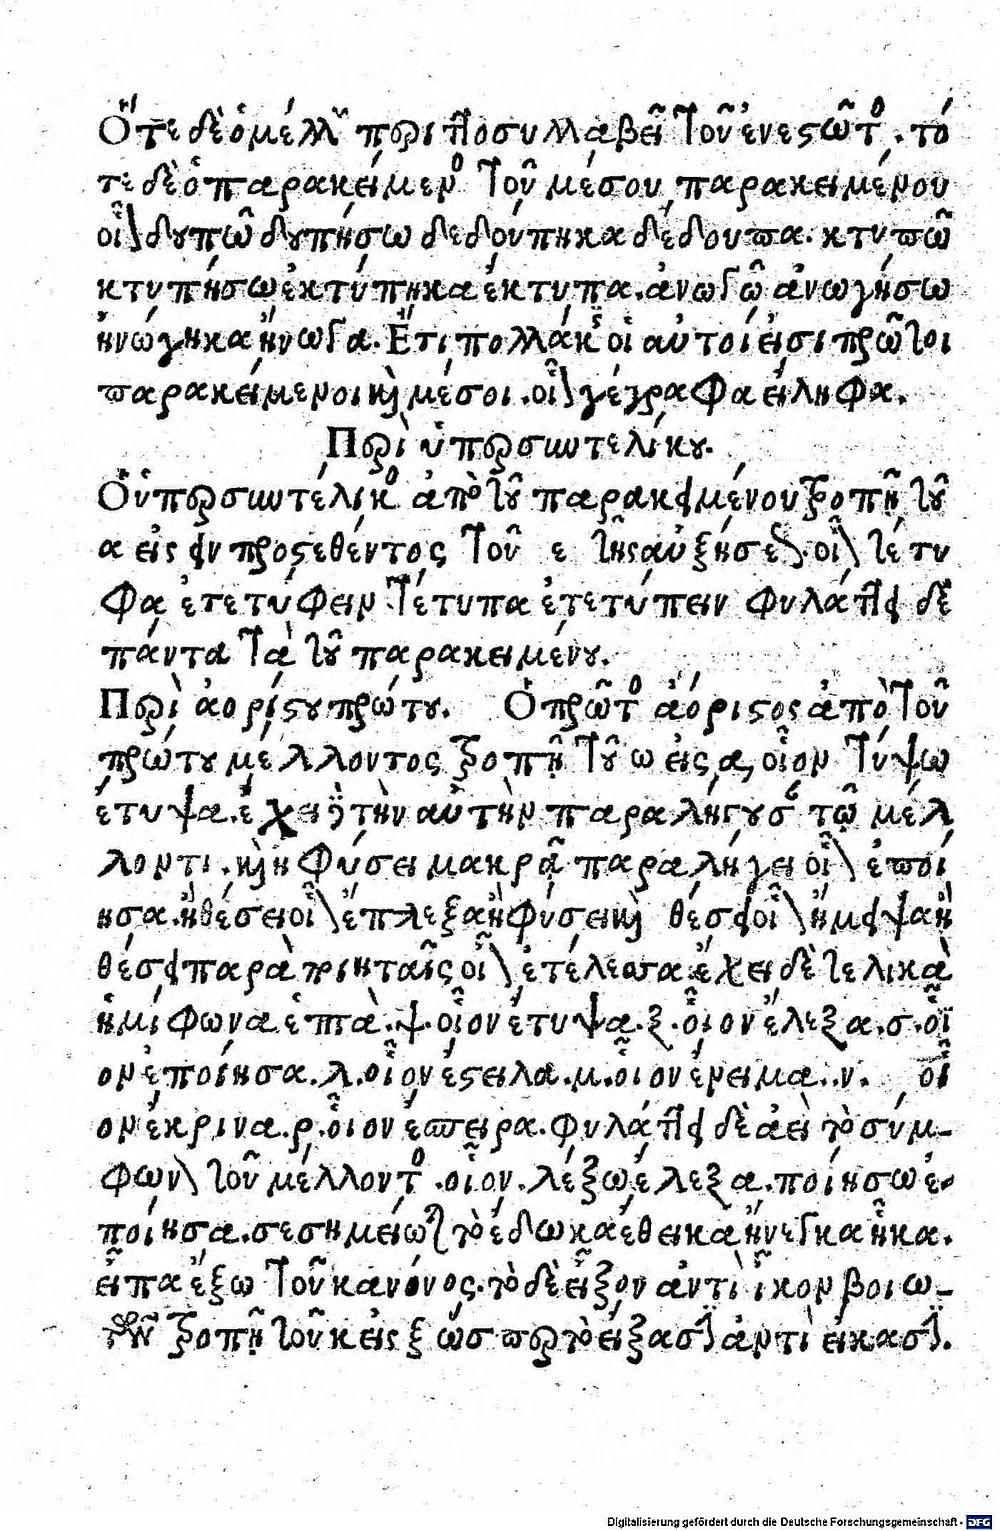 Ὅτε δὲ ὁ μέλλων περιττοσυλλαβεῖ τοῦ ἐνεστῶτος. τό
τε δὲ ὁ παρακείμενος τοῦ μέσου παρακειμένου
οἷον δουπῶ δουπήσω δεδούπηκα δέδουπα. κτυπῶ
κτυπήσω ἐκτύπηκα ἔκτυπα. ἀνωγῶ ἀνωγήσω
ἠνώγηκα ἤνωγα. Ἔτι πολλάκις οἱ αὐτοί εἰσι πρῶτοι
παρακείμενοι καὶ μέσοι. οἷον γέγραφα εἴληφα.
Περὶ ὑπερσυντελίκου.
Ὁ ὑπερσυντέλικος ἀπὸ τοῦ παρακειμένου τροπῇ τοῦ
α εἰς ειν προστεθέντος τοῦ ε τῆς αὐξήσεως. οἷον τέτυ
φα ἐτετύφειν. τέτυπα ἐτετύπειν φυλάττει δὲ
πάντα τὰ τοῦ παρακειμένου.
Περὶ ἀορίστου πρώτου. Ὁ πρῶτος ἀόριστος ἀπὸ τοῦ
πρώτου μέλλοντος τροπῇ τοῦ ω εἰς α, οἷον τύψω
ἔτυψα. ἔχει δὲ τὴν αὐτὴν παραλήγουσαν τῷ μέλ
λοντι. καὶ ἢ φύσει μακρᾷ παραλήγει οἷον ἐποί
ησα. ἢ θέσει οἷον ἔπλεξα ἢ φύσει καὶ θέσει οἷον ἤμειψα ἢ
θέσει παρὰ ποιηταῖς οἷον ἐτέλεσσα ἔχει δὲ τελικὰ
ἡμίφωνα ἑπτὰ. ψ. οἷον ἔτυψα. ξ. οἷον ἔλεξα. σ. οἷ
ον ἐποίησα. λ. οἷον ἔστειλα. μ. οἷον ἔνειμα. ν. οἷ
ον ἔκρινα. ρ. οἷον ἔσπειρα. φυλάττει δὲ ἀεὶ τὸ σύμ-
φωνον τοῦ μέλλοντος. οἷον. λέξω ἔλεξα. ποιήσω ἐ-
ποίησα. σεσημείωται τὸ ἔδωκα ἔθεικα ἤνεγκα ἧκα.
εἶπα ἔξω τοῦ κανόνος. τὸ δὲ εἶξον ἀντὶ ἷκον βοιω-
τῶν τροπῇ τοῦ κ εἰς ξ ὥσπερ τὸ εἴξασι ἀντὶ εἴκασι.
Digitalisierung gefördert durch die Deutsche Forschungsgemeinschaft - DFG